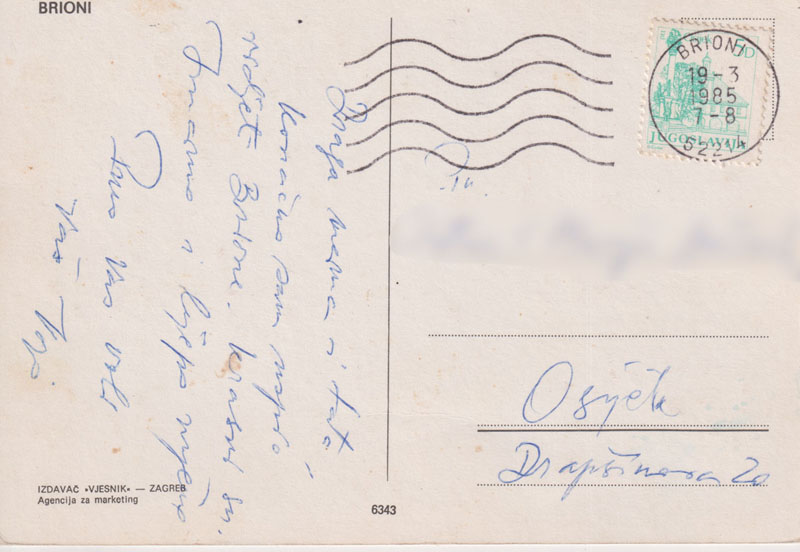 BRIONI
Draga mama i tata
konačno sam uspio
vidjet Brione. Krasni su.
Imamo i lijepo vrijeme
Puno Vas voli
Vaš
IZDAVAČ »VJESNIK« — ZAGREB
Agencija za marketing
6343
BRIONI
19-3
1985
7-8
JUGOSLAVIJA
Osijek
Drapšinova 20